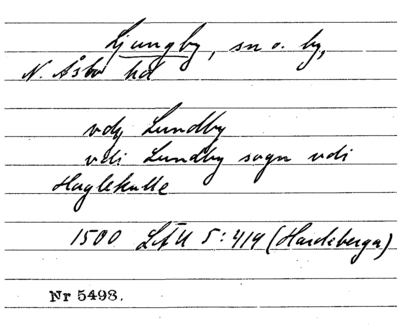 Ljungby, sn o. by,
N. Åsbo hd
vdj Lundby
vdi Lundby sogn vdi
Haglekulle
1500 LÄU 5:414 (Hardeberga)
Nr 5498.